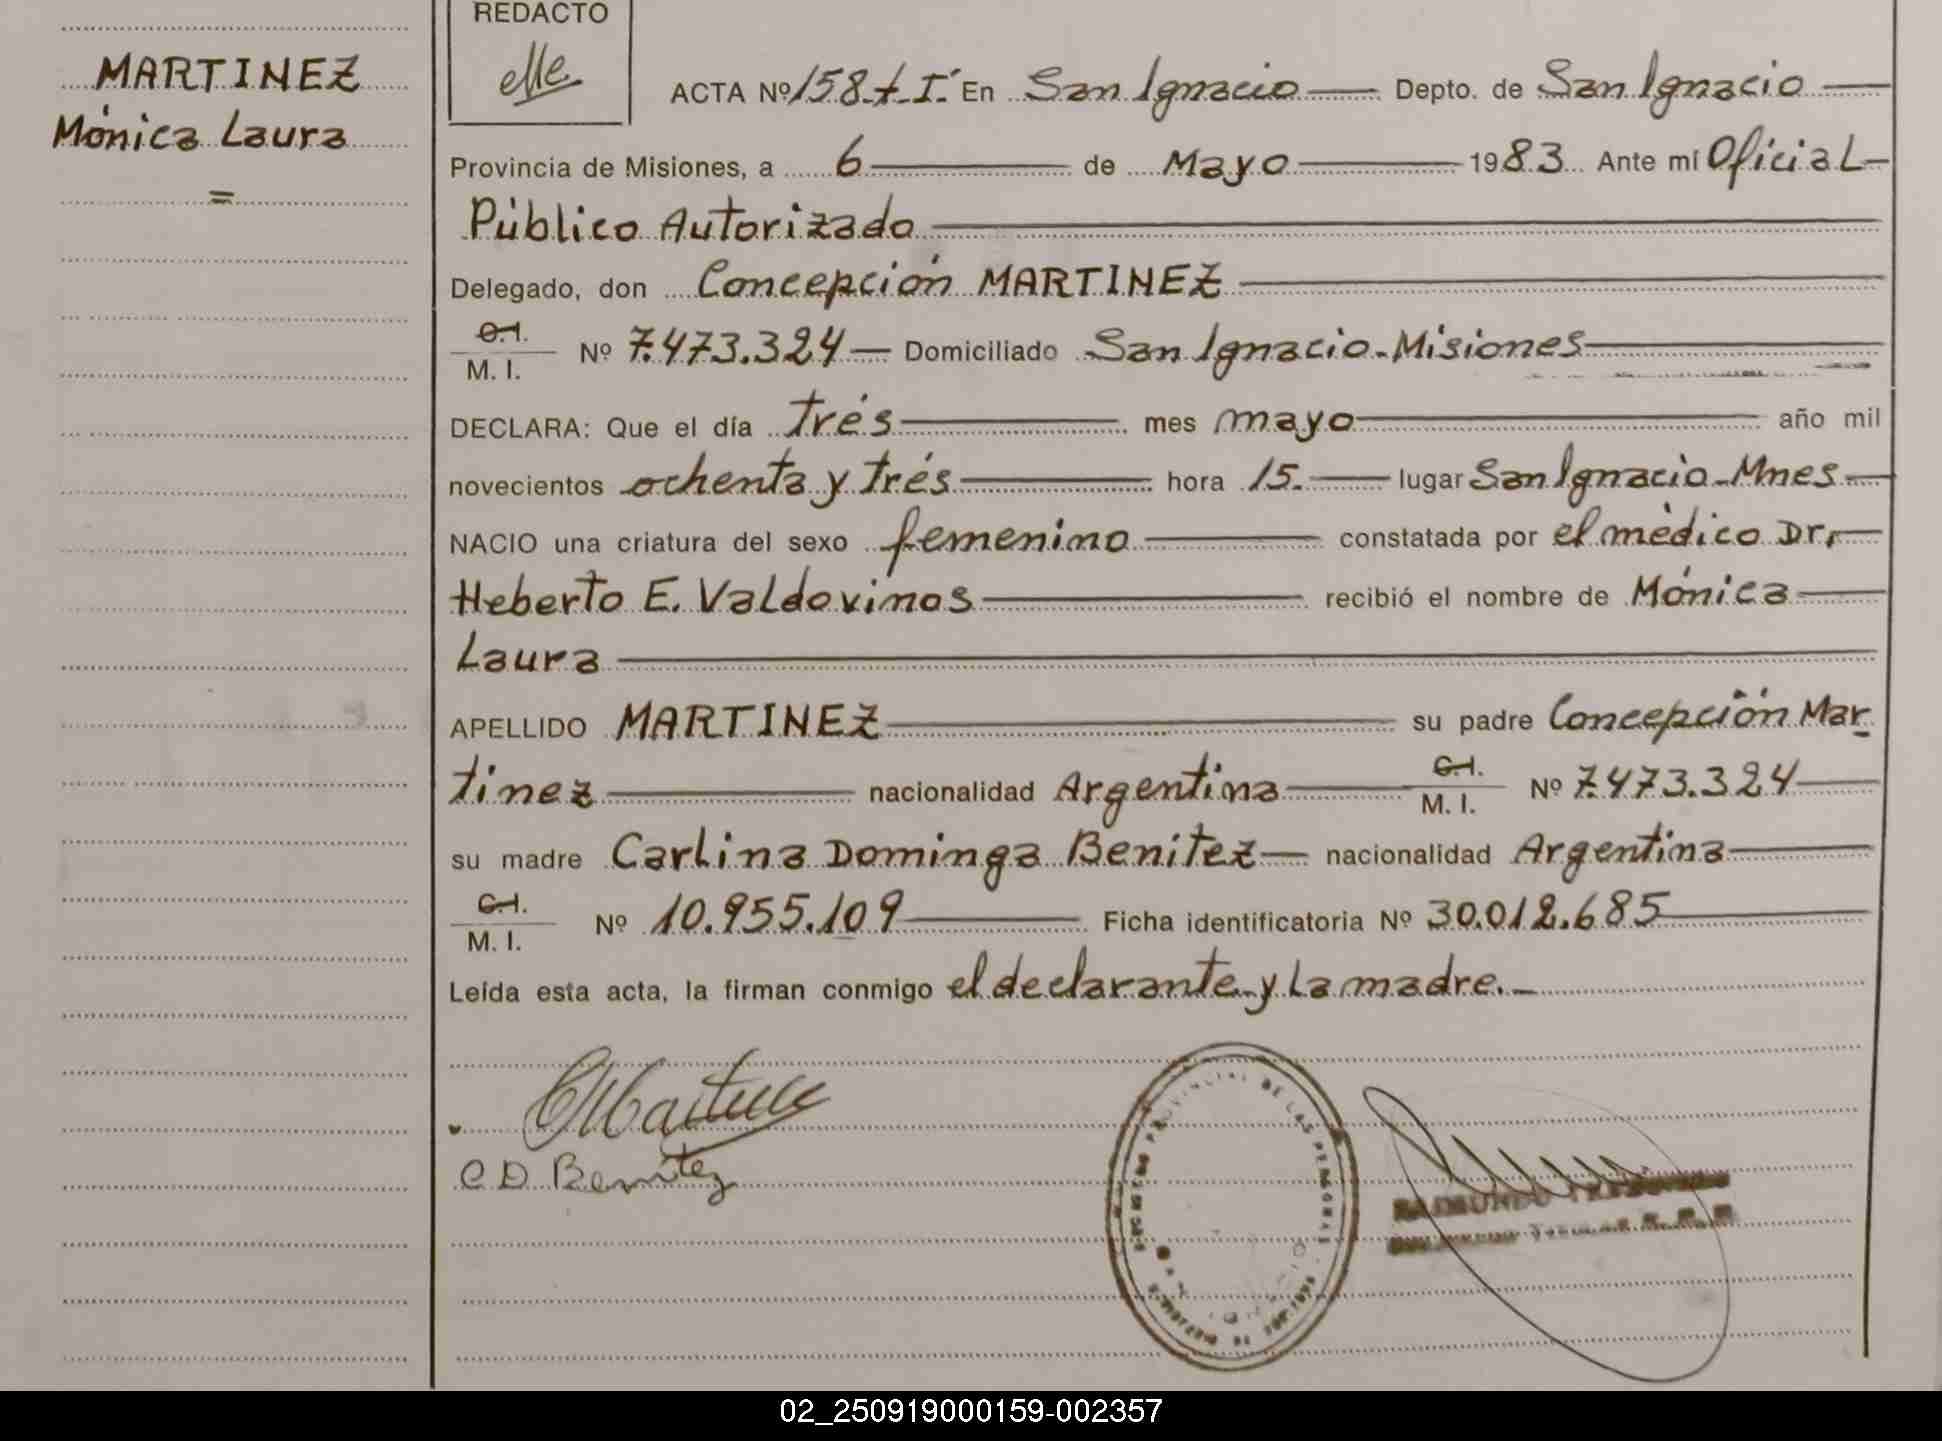 MARTINEZ
Mónica Laura
=
REDACTO
ACTA Nº 158-t-I- En San Ignacio Depto. de San Ignacio
Provincia de Misiones, a 6 de Mayo 1983 Ante mí Oficial
Público Autorizado
Delegado, don Concepción MARTINEZ
C.I.
M. I. Nº 7.473.324 Domiciliado San Ignacio-Misiones
DECLARA: Que el día trés mes mayo año mil
novecientos ochenta y trés hora 15. lugar San Ignacio-Mnes
NACIO una criatura del sexo femenino constatada por el médico Dr.
Heberto E. Valdovinos recibió el nombre de Mónica
Laura
APELLIDO MARTINEZ su padre Concepción Mar
tinez nacionalidad Argentina C.I. M. I. Nº 7.473.324
su madre Carlina Dominga Benitez nacionalidad Argentina
C.I.
M. I. Nº 10.955.109 Ficha identificatoria Nº 30.012.685
Leída esta acta, la firman conmigo el declarante y la madre.
C D Benitez
PROVINCIAL DE LAS PERSONAS
RAIMUNDO
02_250919000159-002357